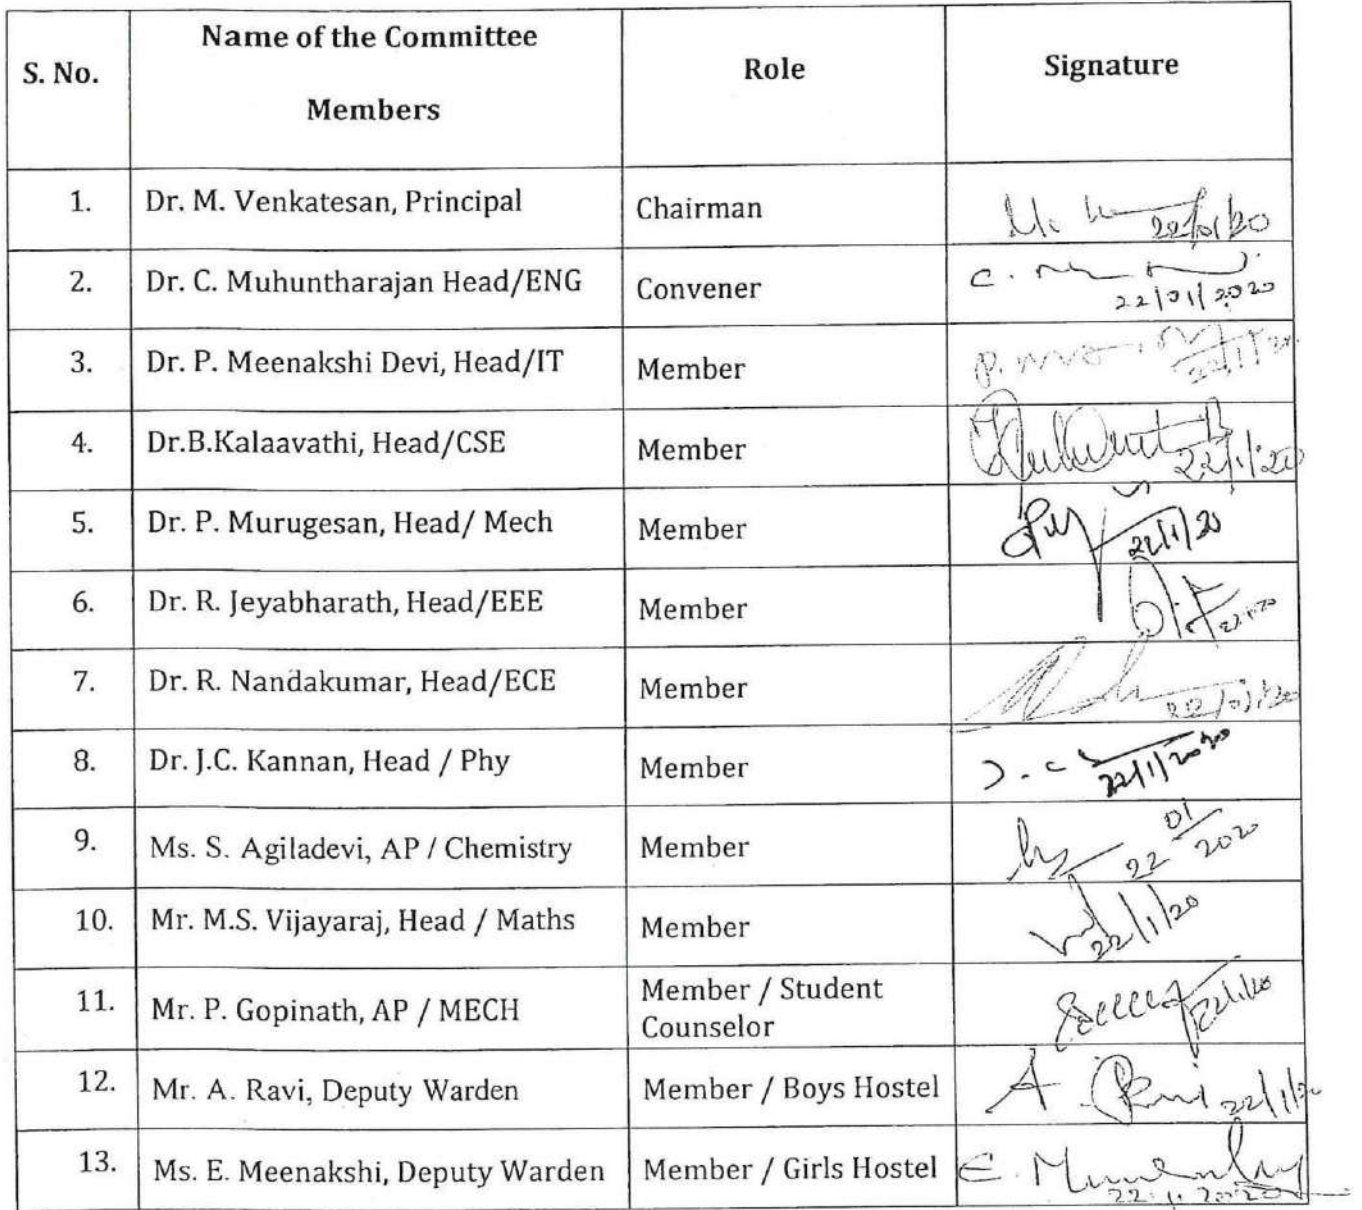 S. No. Name of the Committee Members Role Signature
1. Dr. M. Venkatesan, Principal Chairman 22/01/20
2. Dr. C. Muhuntharajan Head/ENG Convener 22/01/2020
3. Dr. P. Meenakshi Devi, Head/IT Member 22/1/20
4. Dr.B.Kalaavathi, Head/CSE Member 22/1/20
5. Dr. P. Murugesan, Head/ Mech Member 22/1/20
6. Dr. R. Jeyabharath, Head/EEE Member
7. Dr. R. Nandakumar, Head/ECE Member 22/01/20
8. Dr. J.C. Kannan, Head / Phy Member 22/1/2020
9. Ms. S. Agiladevi, AP / Chemistry Member 22/01/2020
10. Mr. M.S. Vijayaraj, Head / Maths Member 22/1/20
11. Mr. P. Gopinath, AP / MECH Member / Student Counselor 22/1/20
12. Mr. A. Ravi, Deputy Warden Member / Boys Hostel A. Ravi 22/1/20
13. Ms. E. Meenakshi, Deputy Warden Member / Girls Hostel 22.1.2020